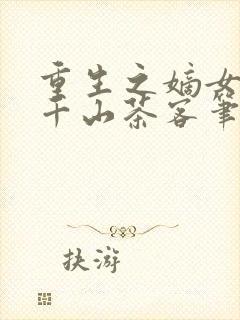 重生之嫡女
千山茶客筆
扶游